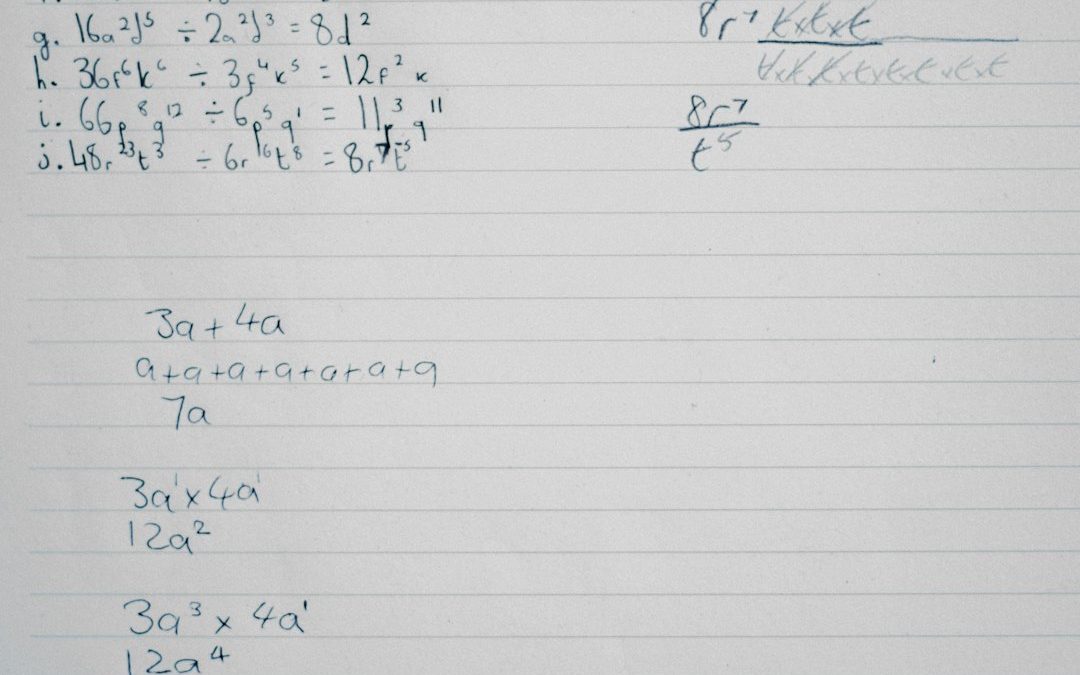 g. 16a²d⁵ ÷ 2a²d³ = 8d²
h. 36f⁶k⁶ ÷ 3f⁴k⁵ = 12f²k
i. 66p⁸q¹² ÷ 6p⁵q¹ = 11p³q¹¹
j. 48r²³t³ ÷ 6r¹⁶t⁸ = 8r⁷t⁻⁵
8r⁷ t×t×t
t×t×t×t×t×t×t×t
8r⁷
t⁵
3a + 4a
a+a+a+a+a+a+a
7a
3a¹×4a¹
12a²
3a³ × 4a¹
12a⁴